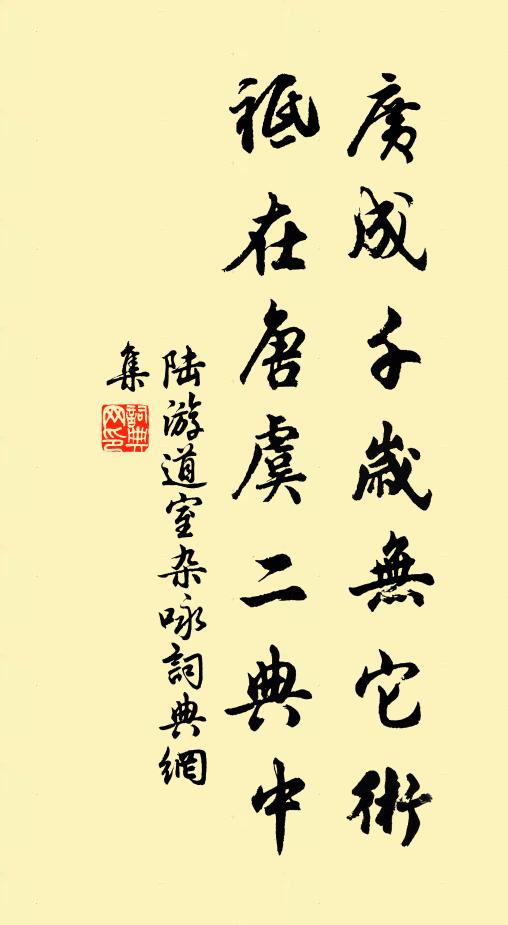 廣成千歲無它術
祗在唐虞二典中
陆游道室杂咏詞典網
集
詞典網印